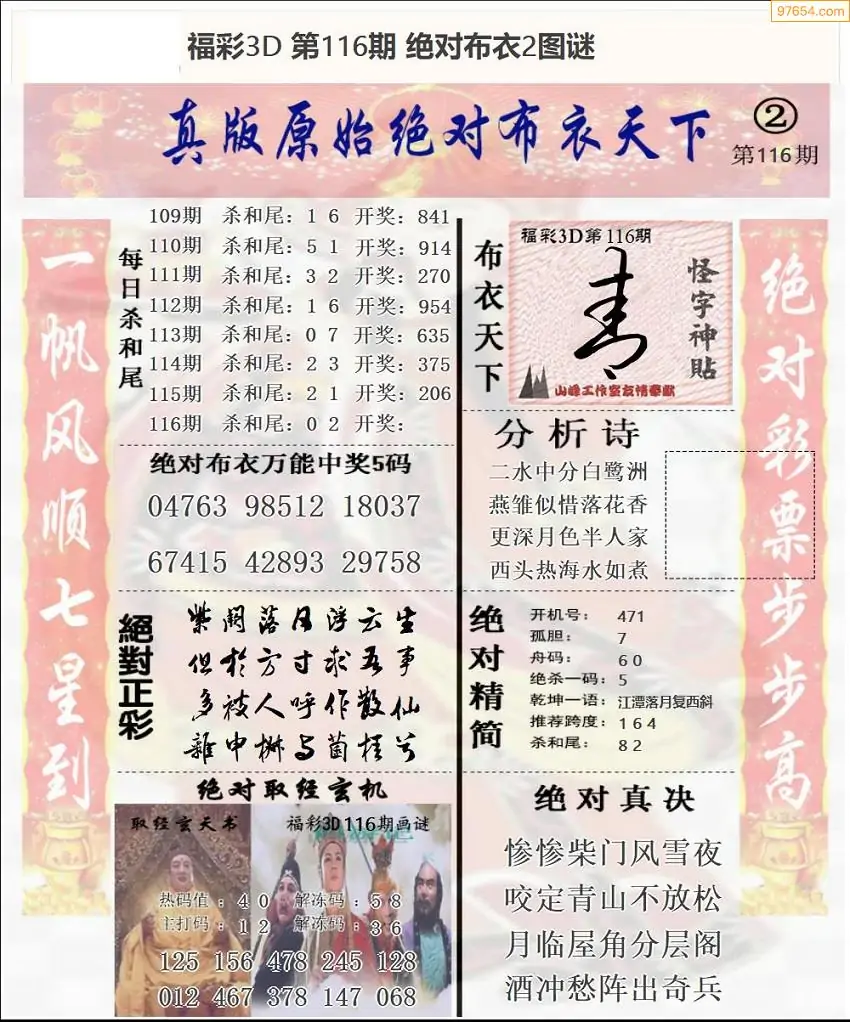 97654.com
福彩3D 第116期 绝对布衣2图谜
真版原始绝对布衣天下
②
第116期
一帆风顺七星到
每日杀和尾
109期 杀和尾：1 6 开奖：841
110期 杀和尾：5 1 开奖：914
111期 杀和尾：3 2 开奖：270
112期 杀和尾：1 6 开奖：954
113期 杀和尾：0 7 开奖：635
114期 杀和尾：2 3 开奖：375
115期 杀和尾：2 1 开奖：206
116期 杀和尾：0 2 开奖：
绝对布衣万能中奖5码
04763 98512 18037
67415 42893 29758
絕對正彩
紫阁落日浮云生
但於方寸求吾事
多被人呼作散仙
雜申椒与菌桂兮
绝对取经玄机
取经玄天书
福彩3D116期画谜
热码值：4 0 解冻码：5 8
主打码：1 2 解冻码：3 6
125 156 478 245 128
012 467 378 147 068
布衣天下
福彩3D第116期
青
怪字神贴
山峰工作室友情奉献
分析诗
二水中分白鹭洲
燕雏似惜落花香
更深月色半人家
西头热海水如煮
绝对精简
开机号： 471
孤胆： 7
舟码： 6 0
绝杀一码：5
乾坤一语：江潭落月复西斜
推荐跨度：1 6 4
杀和尾： 8 2
绝对真决
惨惨柴门风雪夜
咬定青山不放松
月临屋角分层阁
酒冲愁阵出奇兵
绝对彩票步步高